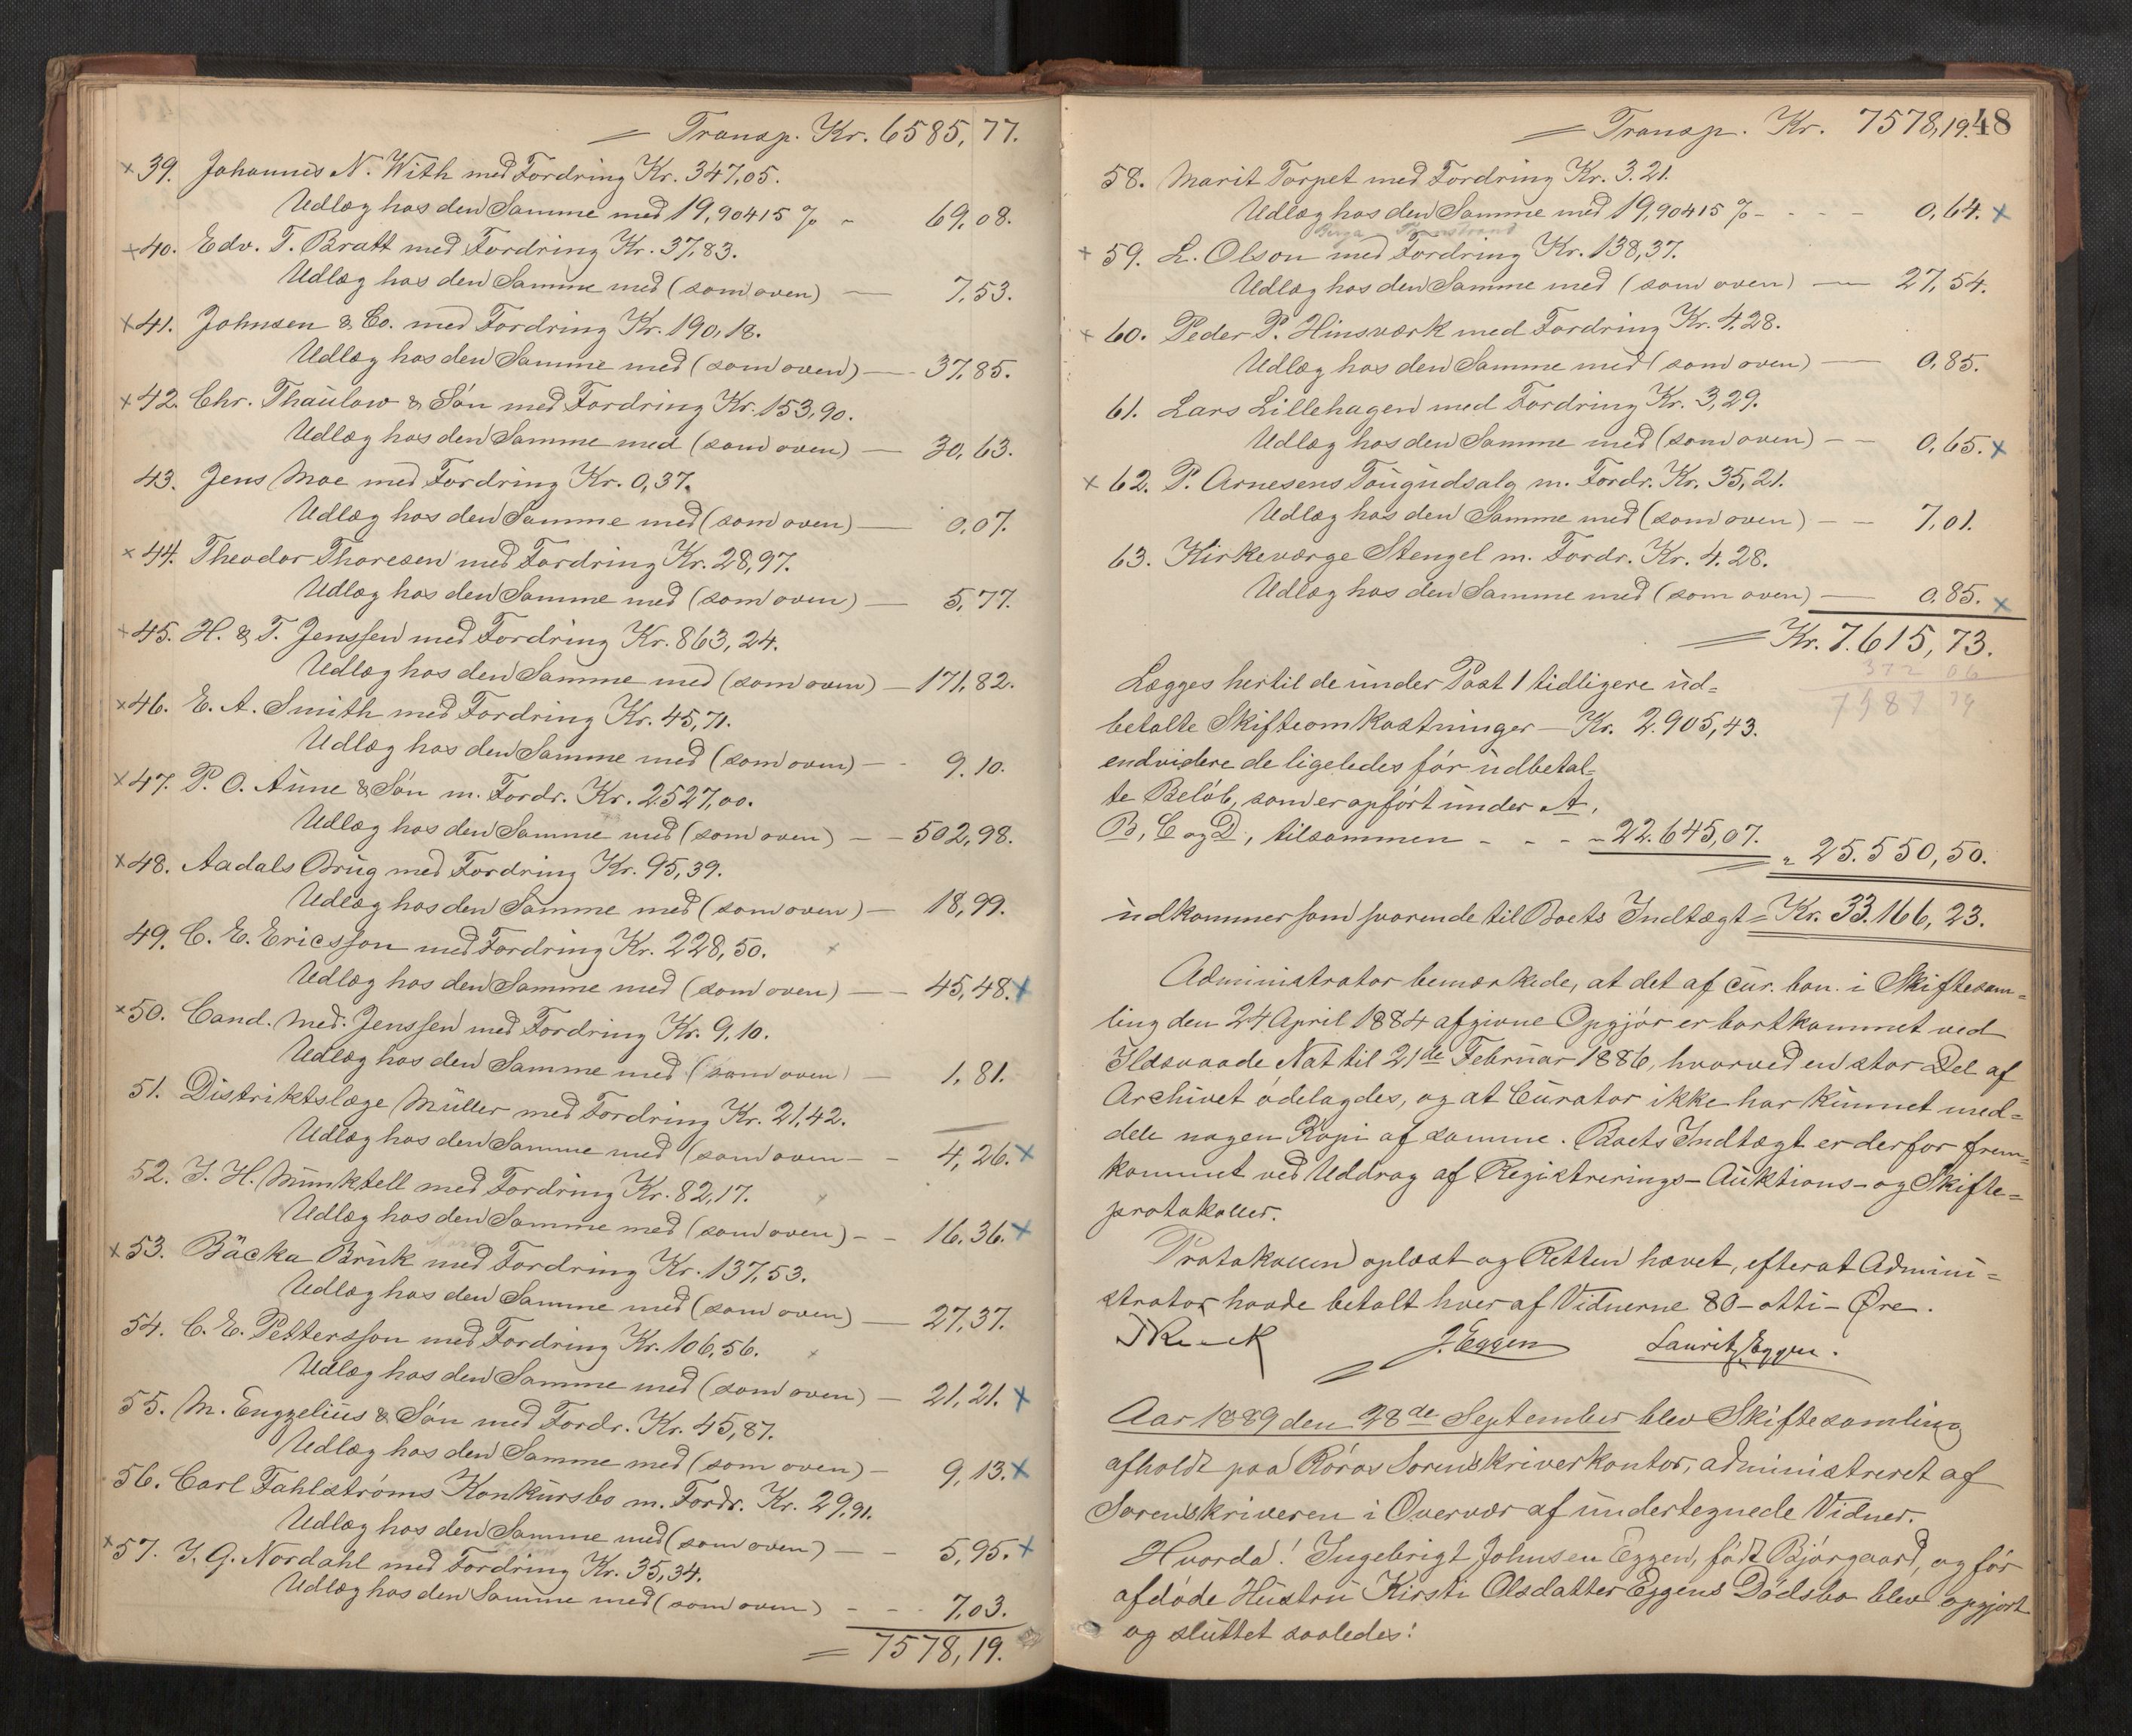 = Transp. Kr. 6585,77.
× 39. Johannes N. With med Fordring Kr. 347,05.
Udlæg hos den Samme med 19,90415 % - 69,08.
× 40. Edv. T. Bratt med Fordring Kr. 37,83.
Udlæg hos den Samme med (som oven) — 7,53.
× 41. Johnsen & Co. med Fordring Kr. 190,18.
Udlæg hos den Samme med (som oven) — 37,85.
× 42. Chr. Thaulow & Søn med Fordring Kr. 153,90.
Udlæg hos den Samme med (som oven) — 30,63.
43. Jens Moe med Fordring Kr. 0,37.
Udlæg hos den Samme med (som oven) — 0,07.
× 44. Theodor Thoresen med Fordring Kr. 28,97.
Udlæg hos den Samme med (som oven) — 5,77.
× 45. H. & T. Jenssen med Fordring Kr. 863,24.
Udlæg hos den Samme med (som oven) — 171,82.
× 46. E. A. Smith med Fordring Kr. 45,71.
Udlæg hos den Samme med (som oven) — - 9.10.
× 47. P. O. Aune & Søn m. Fordr. Kr. 2527,00.
Udlæg hos den Samme med (som oven) — - 502,98.
× 48. Aadals Brug med Fordring Kr. 95,39.
Udlæg hos den Samme med (som oven) — 18,99.
49. C. E. Ericsson med Fordring Kr. 228,50. ×
Udlæg hos den Samme med (som oven) — - 45,48. ×
× 50. Cand. Med. Jenssen med Fordring Kr. 9,10.
Udlæg hos den Samme med (som oven) — 1,81.
51. Distriktslæge Müller med Fordring Kr. 21,42.
Udlæg hos den Samme med (som oven - - 4,26. ×
52. J. H. Munktell med Fordring Kr. 82,17. ×
Udlæg hos den Samme med (som oven) - - 16.36. ×
× 53. Bäcka Bruk med Fordring Kr. 137,53.
Udlæg hos den Samme med (som oven) — 27,37.
54. C. E. Pettersson med Fordring Kr. 106,56. ×
Udlæg hos den Samme med (som oven) — 21,21. ×
55. M. Engzelius & Søn med Fordr. Kr. 45,87.
Udlæg hos den Samme med (som oven) — 9,13. ×
56. Carl Fahlstrøms Konkursbo m. Fordr. Kr. 29,91.
Udlæg hos den Samme med (som oven) — - 5,95. ×
× 57. J. G. Nordahl med Fordring Kr. 35,34.
Udlæg hos den Samme med (som oven) - - - 7,03.
= 7578,19.
= Transp. Kr. 7578,19. 48
58. Marit Torpet med Fordring Kr. 3.21.
Udlæg hos den Samme med 19,90415 % - - - - 0,64. ×
× 59. L. Olson med Fordring Kr. 138,37.
Udlæg hos den Samme med (som oven) — 27,54.
× 60. Peder P. Hinsværk med Fordring Kr. 4,28.
Udlæg hos den Samme med (som oven) — 0,85.
61. Lars Lillehagen med Fordring Kr. 3,29.
Udlæg hos den Samme med (som oven) - - 0,65. ×
× 62. P. Arnesens Tougudsalg m. Fordr. Kr. 35,21.
Udlæg hos den Samme med (som oven) - - 7,01.
63. Kirkeværge Stengel m. Fordr. Kr. 4.28.
Udlæg hos den Samme med (som oven) — 0,85. ×
= Kr. 7.615,73.
372 06
7987 79
Lægges hertil de under Post 1 tidligere ud=
betalte Skifteomkostninger — Kr. 2.905,43.
endvidere de ligeledes før udbetal=
te Beløb, som er opført under A,
B, C og D, tilsammen - - - „ 22.645,07. = „ 25.550,50.
udkommer som svarende til Boets Indtægt = Kr. 33.166,23.
Administrator bemærkede, at det af cur. bon. i Skiftesam=
ling den 24 April 1884 afgivne Opgjør er bortkommet ved
Ildsvaade Nat til 21de Februar 1886, hvorved en stor Del af
Archivet ødelagdes, og at Curator ikke har kunnet med=
dele nogen Kopi af samme. Boets Indtægt er derfor frem=
kommet ved Uddrag af Registrerings- Auktions- og Skifte=
protokoller.
Protokollen oplæst og Retten hævet, efterat Admini=
strator havde betalt hver af Vidnerne 80 - otti - Øre.
J. Eggen Lauritz Eggen.
Aar 1889 den 28de September blev Skiftesamling
afholdt paa Røros Sorenskriverkontor, administreret af
Sorenskriveren i Overvær af undertegnede Vidner.
Hvorda! Ingebrigt Johnsen Eggen, født Bjørgaard, og før
afdøde Hustru Kirsti Olsdatter Eggens Dødsbo blev opgjort
og sluttet saaledes: